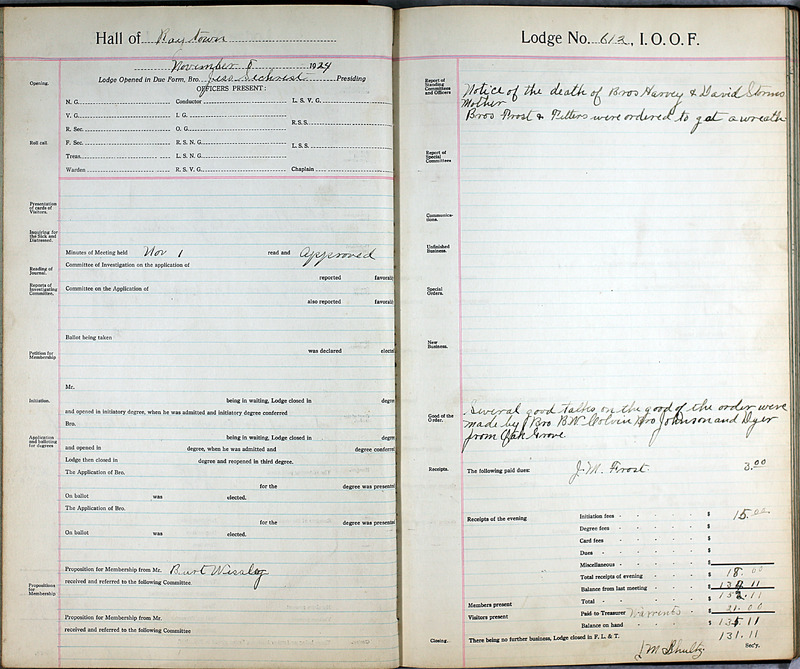 Hall of Raytown
November 8 1924
Lodge Opened in Due Form, Bro. Jess Sechrist Presiding
OFFICERS PRESENT:
Opening.
N. G. Conductor L. S. V. G.
V. G. I. G.
R. S. S.
R. Sec. O. G.
Roll call.
F. Sec. R. S. N. G.
L. S. S.
Treas. L. S. N. G.
Warden R. S. V. G. Chaplain
Presentation of cards of Visitors.
Inquiring for the Sick and Distressed.
Minutes of Meeting held Nov 1 read and Approved
Reading of Journal.
Committee of Investigation on the application of
reported favorab
Reports of Investigating Committee.
Committee on the Application of
also reported favorab
Ballot being taken
was declared elected
Petition for Membership
Mr.
Initiation.
being in waiting, Lodge closed in degre
and opened in initiatory degree, when he was admitted and initiatory degree conferred
Bro.
Application and balloting for degrees
being in waiting, Lodge closed in degre
and opened in degree, when he was admitted and degree conferre
Lodge then closed in degree and reopened in third degree.
The Application of Bro.
for the degree was presente
On ballot was elected.
The Application of Bro.
for the degree was presente
On ballot was elected.
Propositions for Membership
Proposition for Membership from Mr. Burt Wessley
received and referred to the following Committee
Proposition for Membership from Mr.
received and referred to the following Committee
Lodge No. 612, I. O. O. F.
Report of Standing Committees and Officers
Notice of the death of Bros Harvey & David Storms
Mother
Bros Frost & Fitters were ordered to get a wreath
Report of Special Committees
Communications.
Unfinished Business.
Special Orders.
New Business.
Good of the Order.
Several good talks on the good of the order were
made by Bro B.W. Colvin Bro Johnson and Dyer
from Oak Grove
Receipts.
The following paid dues: J.M. Frost 3.00
Receipts of the evening
Initiation fees $ 15.00
Degree fees $
Card fees $
Dues $
Miscellaneous $
Total receipts of evening $ 18.00
Balance from last meeting $
Members present
Total $ 152.11
Visitors present
Paid to Treasurer Warrents $ 21.00
Balance on hand $
131.11
Closing.
There being no further business, Lodge closed in F. L. & T.
J M Shultz Sec'y.